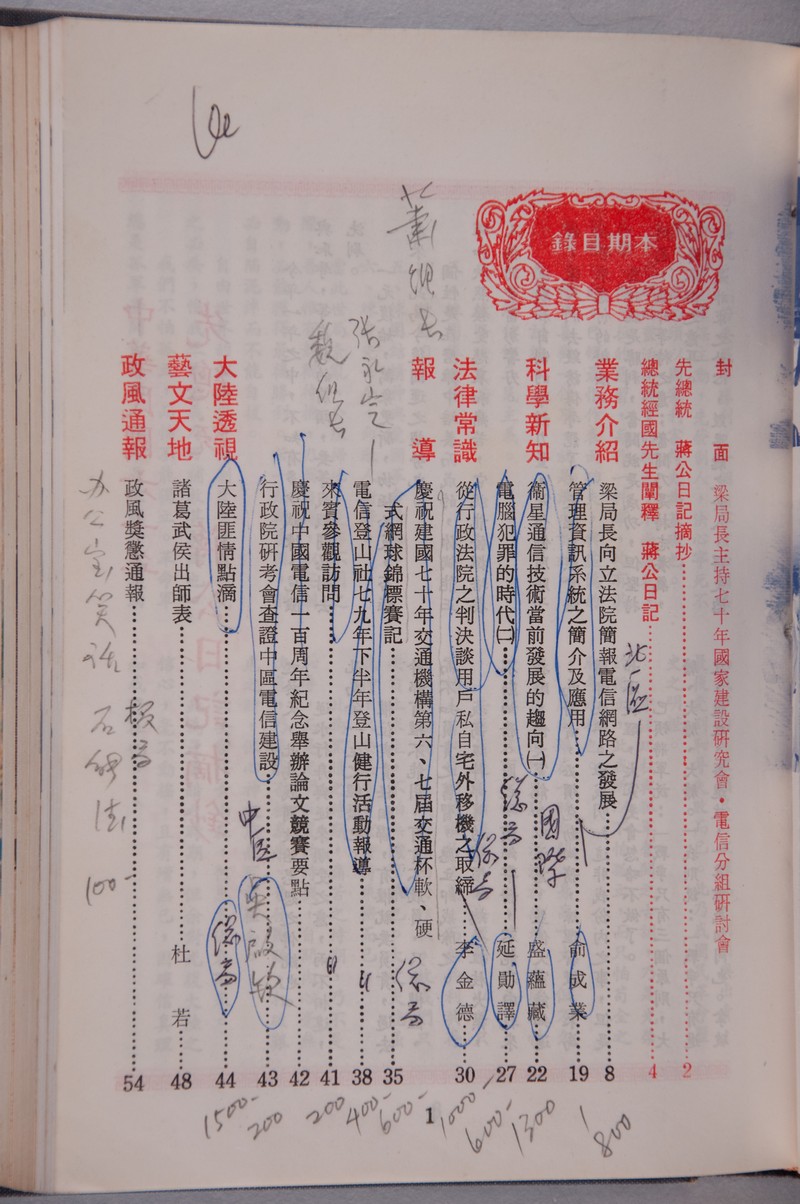 本期目錄
封　面　梁局長主持七十年國家建設研究會・電信分組研討會
先總統　蔣公日記摘抄……2
總統經國先生闡釋　蔣公日記……4
業務介紹　梁局長向立法院簡報電信網路之發展……8
管理資訊系統之簡介及應用……俞成業……19
科學新知　衞星通信技術當前發展的趨向㈠……盛蘊藏……22
電腦犯罪的時代㈡……延勛譯……27
法律常識　從行政法院之判決談用戶私自宅外移機之取締……李金德……30
報　導　慶祝建國七十年交通機構第六、七屆交通杯軟、硬
式網球錦標賽記……35
電信登山社七九年下半年登山健行活動報導……38
來賓參觀訪問……41
慶祝中國電信一百周年紀念舉辦論文競賽要點……42
行政院研考會查證中區電信建設……43
大陸透視　大陸匪情點滴……44
藝文天地　諸葛武侯出師表……杜　若……48
政風通報　政風獎懲通報……54
北區
國際
中區
張永
辦公室
100-
1500-
200
200
400-
600-
1000
600-
1300
800
1